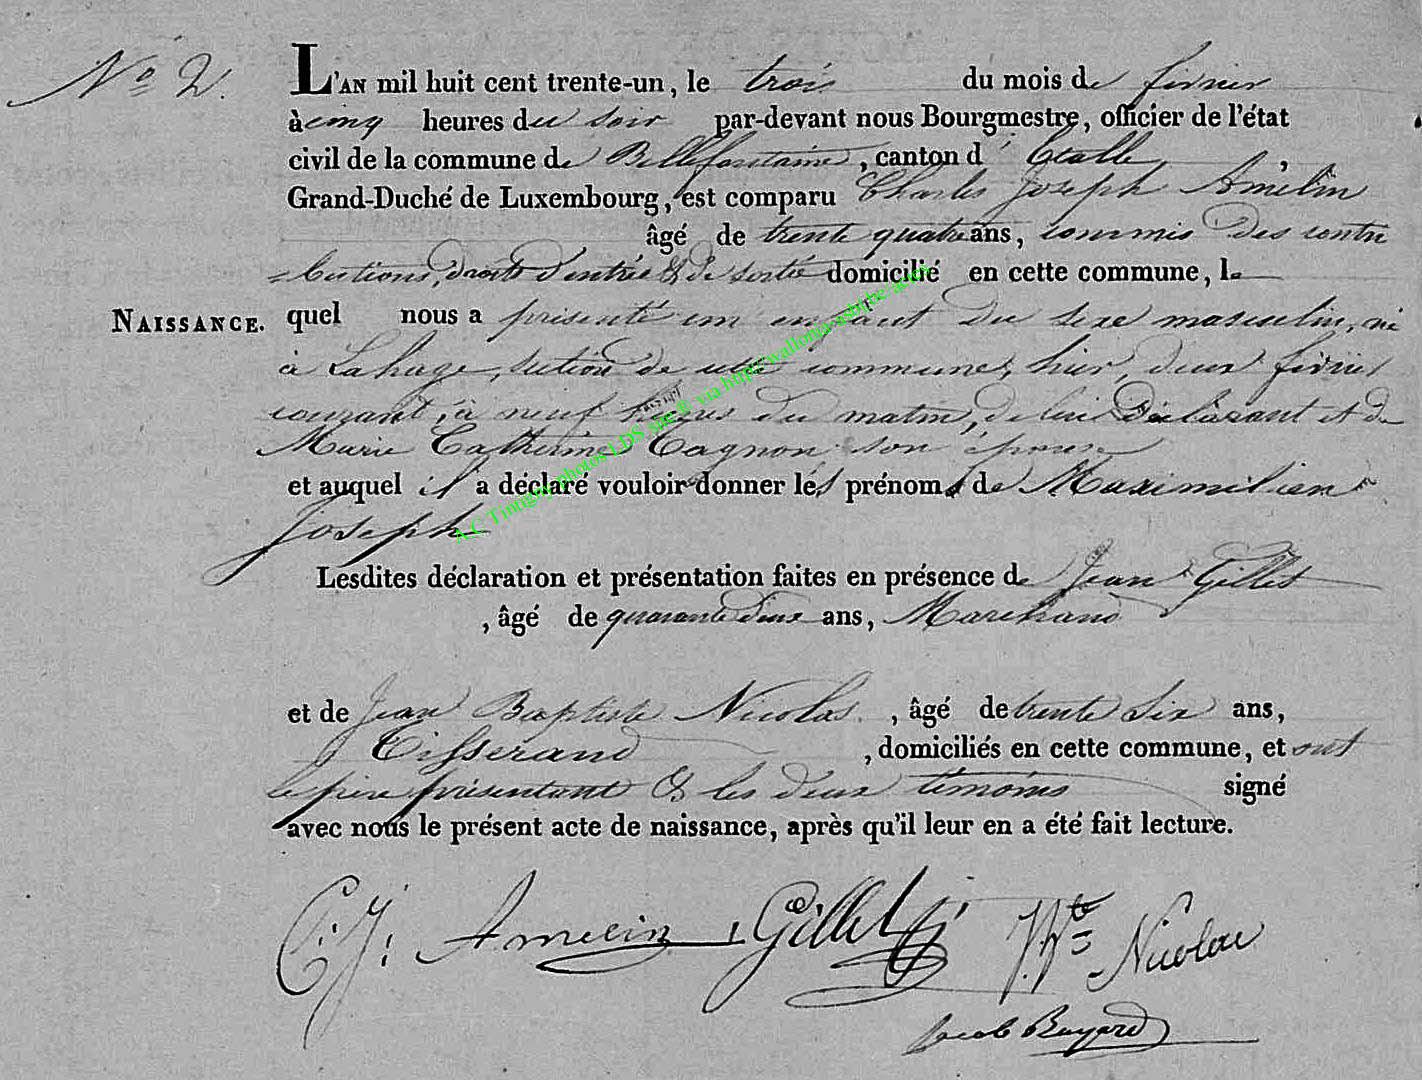 N° 2.
L'AN mil huit cent trente-un, le trois du mois de février
à cinq heures du soir par-devant nous Bourgmestre, officier de l'état
civil de la commune de Bellefontaine, canton d'Etalle,
Grand-Duché de Luxembourg, est comparu Charles Joseph Amelin
âgé de trente quatre ans, commis des contri
=butions, droits d'entrée & de sortie domicilié en cette commune, le
NAISSANCE. quel nous a présenté un enfant du sexe masculin, né
à Lahage, section de cette commune, hier, deux février
courant, à neuf heures du matin, de lui Déclarant et de
Marie Catherine Cagnon son épouse
et auquel il a déclaré vouloir donner les prénoms de Maximilien
Joseph
Lesdites déclaration et présentation faites en présence de Jean Gillet
, âgé de quarante deux ans, Marchand
et de Jean Baptiste Nicolas, âgé de trente six ans,
Tisserand, domiciliés en cette commune, et ont
le père présentant & les deux témoins signé
avec nous le présent acte de naissance, après qu'il leur en a été fait lecture.
C: J: Amelin J Gillet J. Bte Nicolas
Jacob Buyard
A.C Tintigny photos LDS via http://wallonia-asbl.be/actes